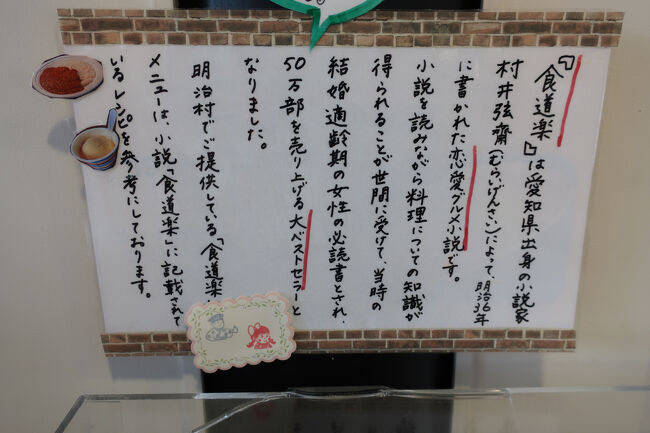 『食道楽』は愛知県出身の小説家
村井弦齋(むらいげんさい)によって、明治36年
に書かれた恋愛グルメ小説です。
小説を読みながら料理についての知識が
得られることが世間に受けて、当時の
結婚適齢期の女性の必読書とされ、
50万部を売り上げる大ベストセラーと
なりました。
明治村でご提供している「食道楽
メニューは、小説「食道楽」に記載されて
いるレシピを参考にしております。